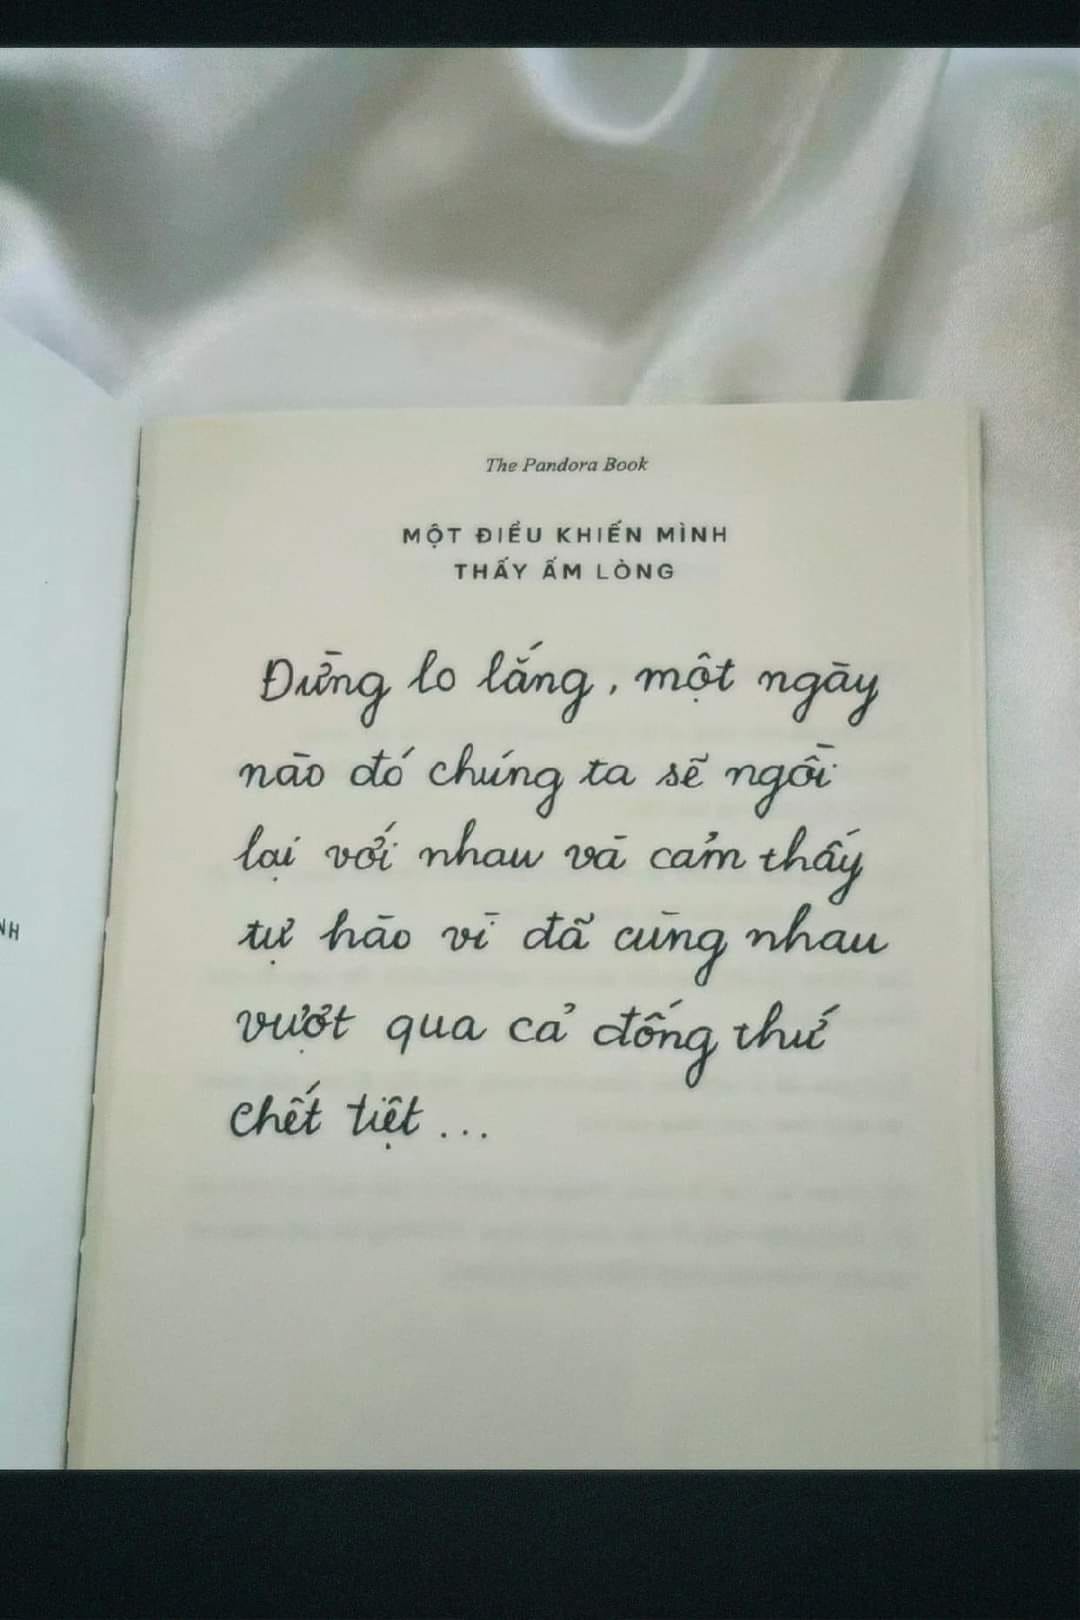 The Pandora Book
MỘT ĐIỀU KHIẾN MÌNH
THẤY ẤM LÒNG
Đừng lo lắng, một ngày
nào đó chúng ta sẽ ngồi
lại với nhau và cảm thấy
tự hào vì đã cùng nhau
vượt qua cả đống thứ
chết tiệt...
NH